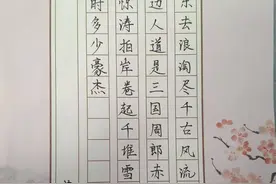 东去浪淘尽千古风流
边人道是三国周郎赤
惊涛拍岸卷起千堆雪
时多少豪杰